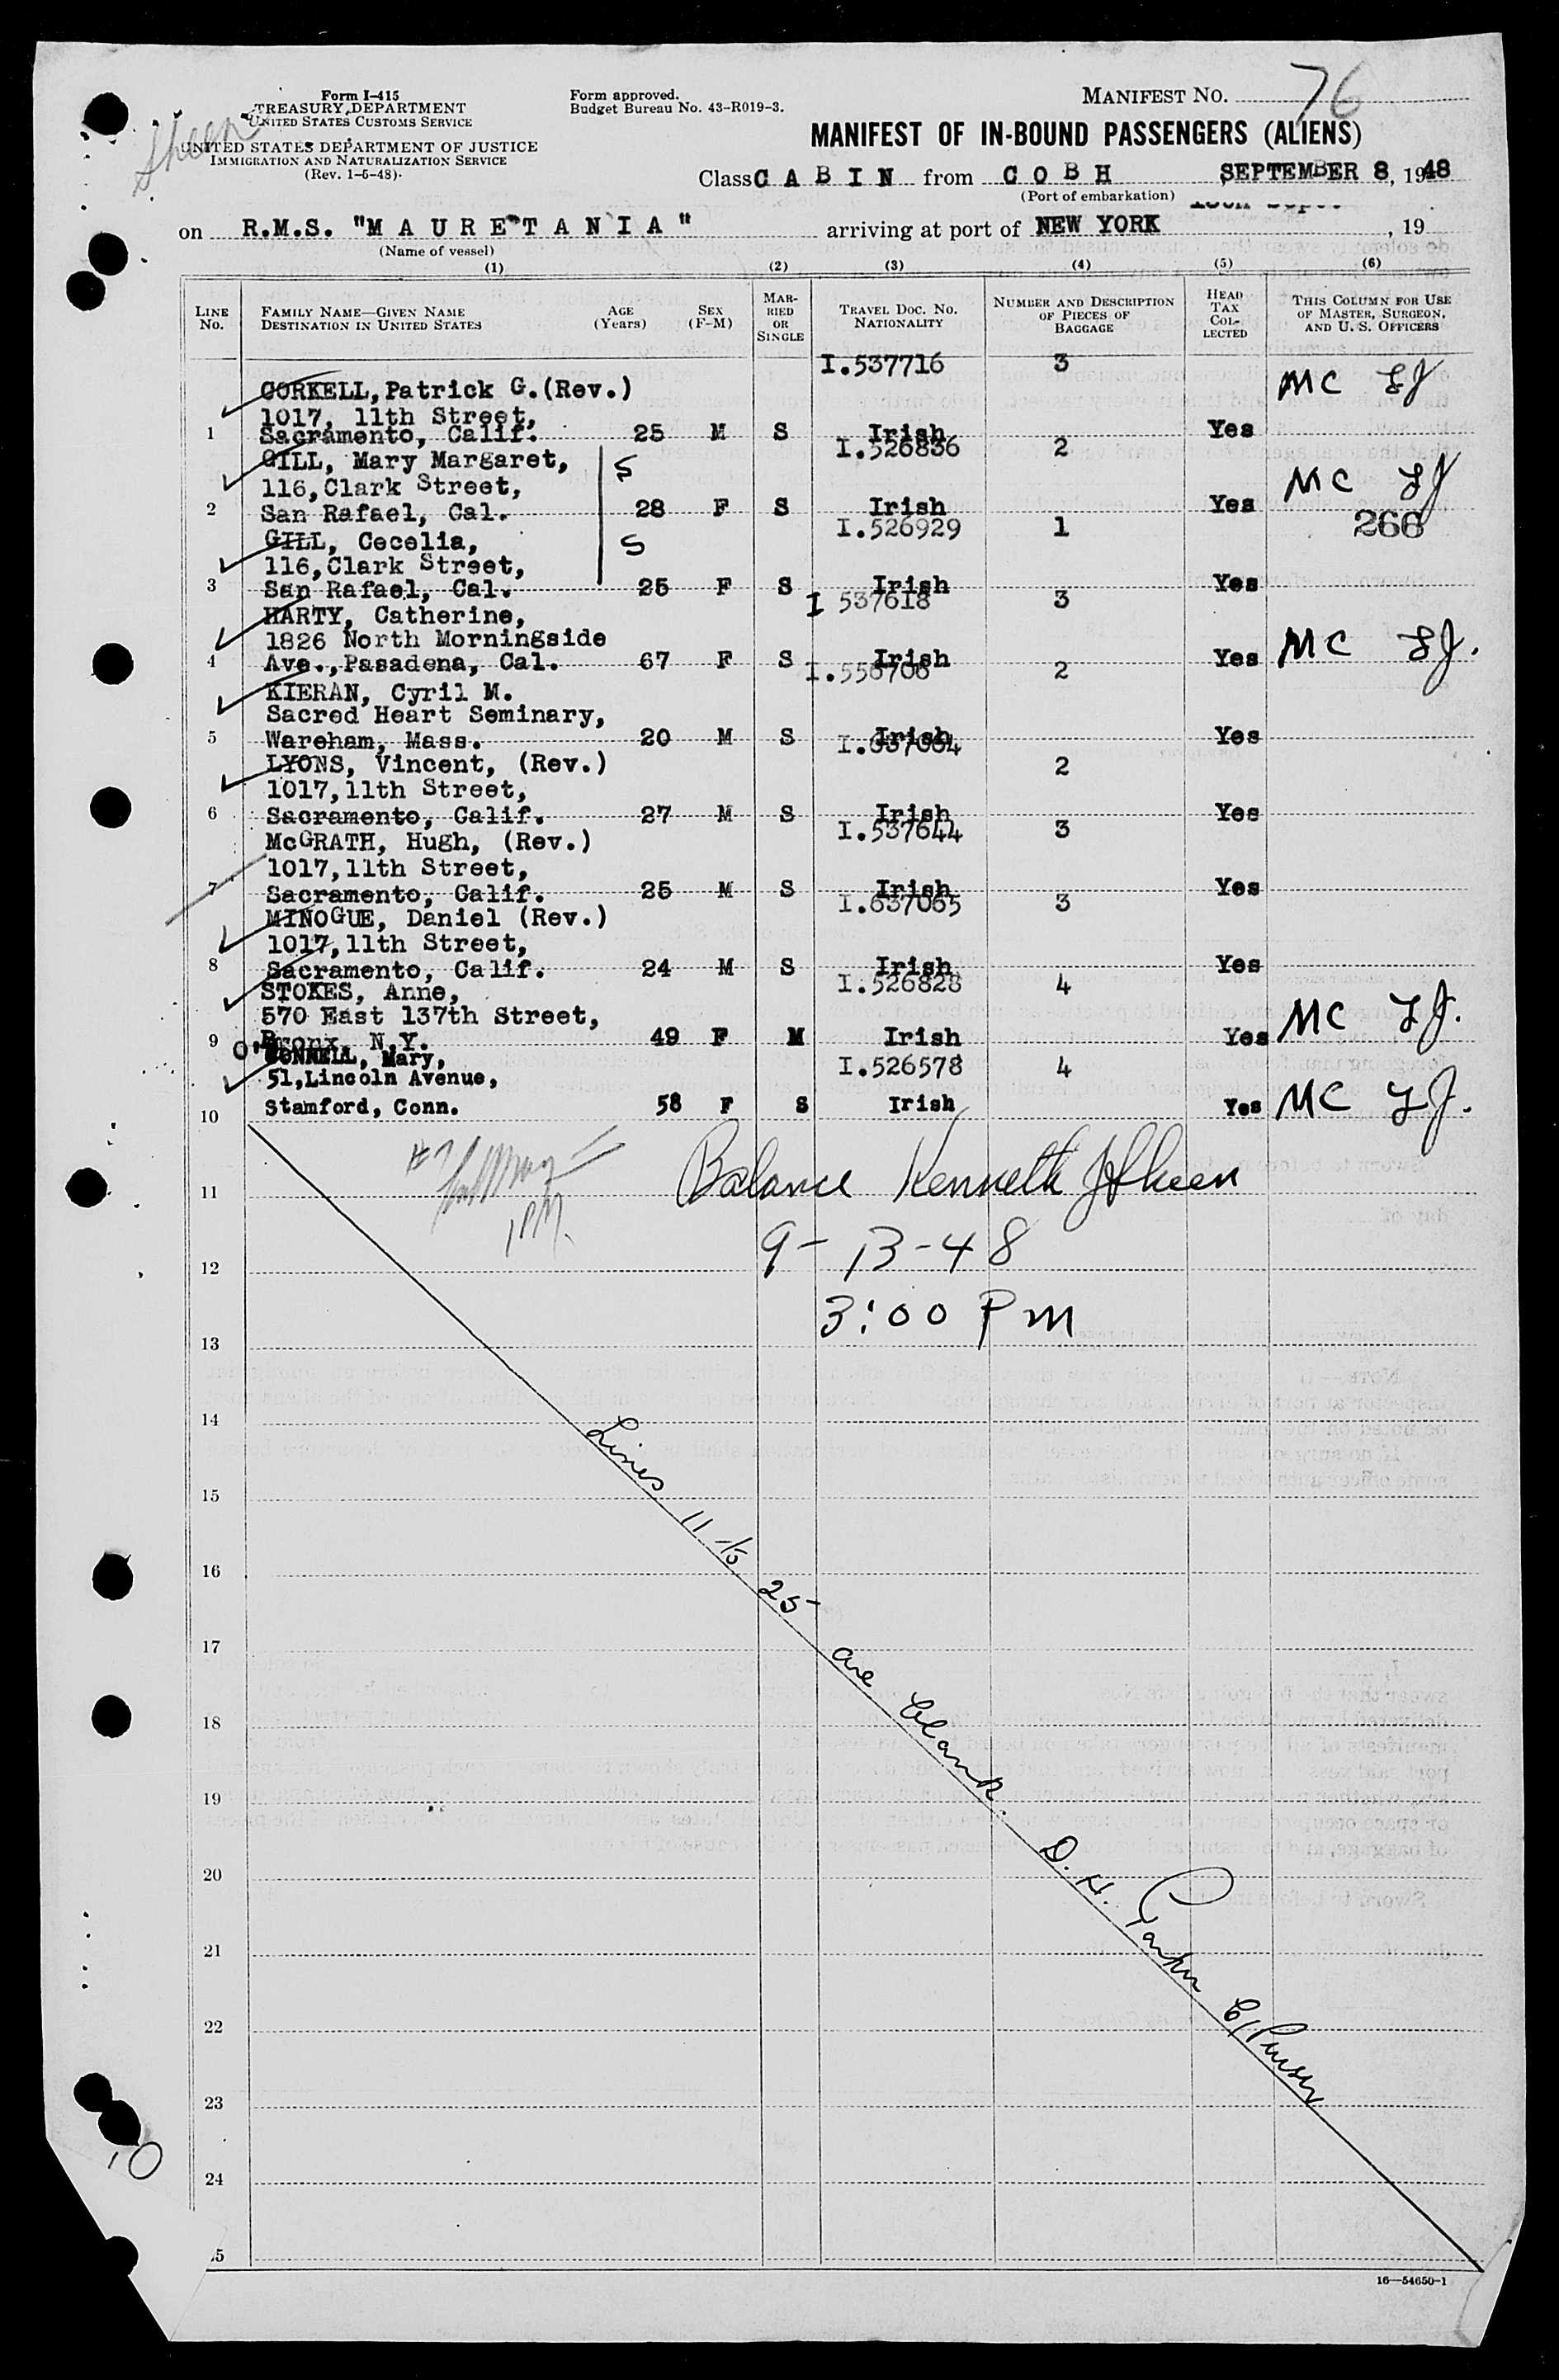 Form I-415
TREASURY DEPARTMENT
UNITED STATES CUSTOMS SERVICE
UNITED STATES DEPARTMENT OF JUSTICE
IMMIGRATION AND NATURALIZATION SERVICE
(Rev. 1-5-48)
Sheen
Form approved.
Budget Bureau No. 43-R019-3.
MANIFEST NO. 76
MANIFEST OF IN-BOUND PASSENGERS (ALIENS)
Class CABIN from COBH SEPTEMBER 8, 1948
(Port of embarkation)
on R.M.S. "MAURETANIA" arriving at port of NEW YORK , 19
(Name of vessel)
(1) (2) (3) (4) (5) (6)
LINE No. FAMILY NAME—GIVEN NAME DESTINATION IN UNITED STATES AGE (Years) SEX (F-M) MARRIED OR SINGLE TRAVEL DOC. NO. NATIONALITY NUMBER AND DESCRIPTION OF PIECES OF BAGGAGE HEAD TAX COLLECTED THIS COLUMN FOR USE OF MASTER, SURGEON, AND U. S. OFFICERS
I.537716 3
CORKELL, Patrick G. (Rev.) MC
1017, 11th Street,
1 Sacramento, Calif. 25 M S Irish Yes
GILL, Mary Margaret, S I.526836 2
116, Clark Street, MC
2 San Rafael, Cal. 28 F S Irish Yes
GILL, Cecelia, S I.526929 1 266
116, Clark Street,
3 San Rafael, Cal. 25 F S Irish Yes
HARTY, Catherine, I 537618 3
1826 North Morningside
4 Ave., Pasadena, Cal. 67 F S Irish Yes MC
KIERAN, Cyril M. 2
Sacred Heart Seminary,
5 Wareham, Mass. 20 M S Irish Yes
LYONS, Vincent, (Rev.) 2
1017, 11th Street,
6 Sacramento, Calif. 27 M S Irish Yes
McGRATH, Hugh, (Rev.) I.537644 3
1017, 11th Street,
7 Sacramento, Calif. 25 M S Irish Yes
MINOGUE, Daniel (Rev.) I.637065 3
1017, 11th Street,
8 Sacramento, Calif. 24 M S Irish Yes
STOKES, Anne, I.526828 4
570 East 137th Street,
9 Bronx, N.Y. 49 F M Irish Yes MC
O'CONNELL, Mary, I.526578 4
51, Lincoln Avenue,
10 Stamford, Conn. 58 F S Irish Yes MC
#7
1 PM.
Balance Kenneth J Sheen
11
9-13-48
12
3:00 PM
13
14
Lines 11 to 25 are blank.
15
16
17
18
19
20
D. H. Parker C/Purser
21
22
23
24
16—54650-1